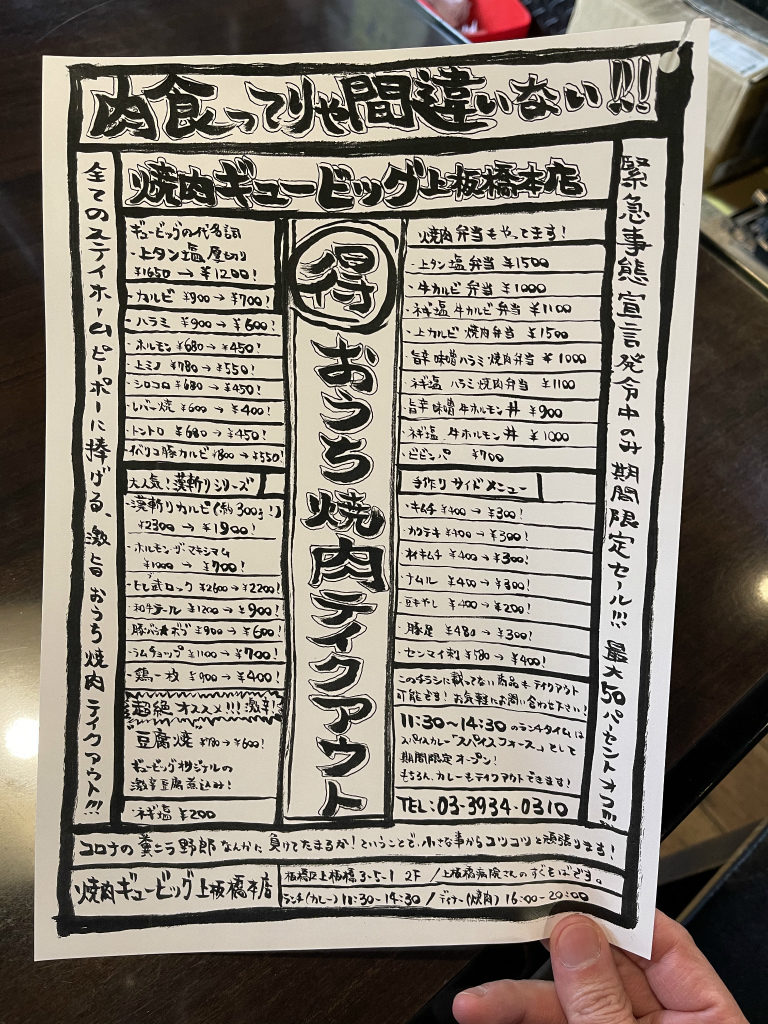 肉食ってりゃ間違いない!!!
焼肉ギュービッグ上板橋本店
緊急事態宣言発令中のみ期間限定セール!!! 最大50パーセントオフ!!!
全てのステイホームピーポーに捧げる、激旨おうち焼肉テイクアウト!!!
得おうち焼肉テイクアウト
ギュービッグの代名詞
・上タン塩厚切り
¥1650→¥1200!
・カルビ ¥900→¥700!
・ハラミ ¥900→¥600!
・ホルモン ¥680→¥450!
・上ミノ ¥780→¥550!
・シロコロ ¥680→¥450!
・レバー焼 ¥600→¥400!
・トントロ ¥680→¥450!
・イベリコ豚カルビ ¥800→¥550!
大人気!漢斬りシリーズ
・漢斬りカルビ(約300g!)
¥2300→¥1900!
・ホルモン・ザ・マキシマム
¥1000→¥700!
・とし武ロック ¥2600→¥2200!
・和牛テール ¥1200→¥900!
・豚バラ★ボブ ¥900→¥600!
・ラムチョップ ¥1100→¥700!
・鶏一枚 ¥900→¥400!
超絶オススメ!!! 激辛!
豆腐焼 ¥780→¥600!
ギュービッグオリジナルの
激辛豆腐煮込み!
・ネギ塩 ¥200
焼肉弁当もやってます!
・上タン塩弁当 ¥1500
・牛カルビ弁当 ¥1000
・ネギ塩牛カルビ弁当 ¥1100
・上カルビ焼肉弁当 ¥1500
・旨辛味噌ハラミ焼肉弁当 ¥1000
・ネギ塩ハラミ焼肉弁当 ¥1100
・旨辛味噌牛ホルモン丼 ¥900
・ネギ塩牛ホルモン丼 ¥1000
・ビビンパ ¥700
手作りサイドメニュー
・キムチ ¥400→¥300!
・カクテキ ¥400→¥300!
・オイキムチ ¥400→¥300!
・ナムル ¥400→¥300!
・豆もやし ¥400→¥200!
・豚足 ¥480→¥300!
・センマイ刺 ¥580→¥400!
このチラシに載ってない商品もテイクアウト
可能です!お気軽にお問い合わせ下さい!
11:30〜14:30のランチタイムは
スパイスカレー「スパイスフォース」として
期間限定オープン!
もちろん、カレーもテイクアウトできます!
TEL:03-3934-0310
コロナの糞ニラ野郎なんかに負けてたまるか!ということで、小さな事からコツコツと頑張ります!
焼肉ギュービッグ上板橋本店
板橋区上板橋3-5-1 2F /上板橋病院さんのすぐそばです。
ランチ(カレー)11:30-14:30 / ディナー(焼肉) 16:00-20:00